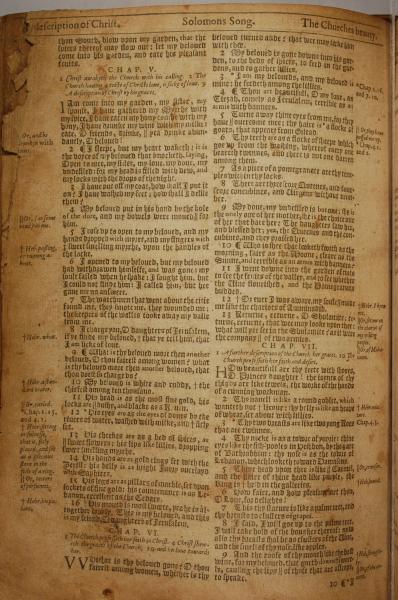 description of Christ. Solomons Song. The Churches beauty.
thou South, blow upon my garden, that the
spices thereof may flow out: let my beloved
come into his garden, and eate his pleasant
fruits.
CHAP. V.
1 Christ awaketh the Church with his calling. 2 The
Church having a taste of Christs love, is sicke of love. 9
A description of Christ by his graces.
I Am come into my garden, my sister, my
spouse, I have gathered my Myrrhe with
my spice, I have eaten my hony combe with my
hony, I have drunke my wine with my milke:
eate, O friends, drinke, yea drinke abun-
dantly, O beloved!
2 I sleep, but my heart waketh: it is
the voyce of my beloved that knocketh, saying,
Open to me, my sister, my love, my dove, my
undefiled: for my head is filled with dew, and
my locks with the drops of the night.
3 I have put off my coat, how shall I put it
on? I have washed my feet, how shall I defile
them?
4 My beloved put in his hand by the hole
of the dore, and my bowels were moved for
him.
5 I rose up to open to my beloved, and my
hands dropped with myrrh, and my fingers with
sweet smelling myrrhe, upon the handles of
the locke.
6 I opened to my beloved, but my beloved
had withdrawen himselfe, and was gone: my
soule failed when hee spake: I sought him, but
I could not finde him: I called him, but hee
gave me no answere.
7 The watchmen that went about the citie
found me, they smote me, they wounded me,
the keepers of the walles tooke away my vaile
from me.
8 I charge you, O daughters of Jerusalem,
if ye finde my beloved, that ye tell him, that
I am sicke of love.
9 What is thy beloved more then another
beloved, O thou fairest among women? what
is thy beloved more then another beloved, that
thou doest so charge us?
10 My beloved is white and ruddy, the
chiefest among ten thousand.
11 His head is as the most fine gold, his
locks are bushy, and blacke as a Raven.
12 His eyes are as the eyes of doves by the
rivers of water, washed with milke, and fitly
set.
13 His cheekes are as a bed of spices, as
sweet flowers: his lips like lillies, dropping
sweet smelling myrrhe.
14 His hands are as gold rings set with the
Berill: his belly is as bright Ivory overlayd
with Saphires.
15 His legs are as pillars of marble, set upon
sockets of fine gold: his countenance is as Le-
banon, excellent as the Cedars.
16 His mouth is most sweete, yea he is al-
together lovely. This is my beloved, and this
is my friend, O daughters of Jerusalem.
CHAP. VI.
1 The Church professeth her faith in Christ. 4 Christ shew-
eth the graces of the Church, 10 and his love towards
her.
WHither is thy beloved gone, O thou
fairest among women, whither is thy
beloved turned aside? that wee may seeke him
with thee.
2 My beloved is gone downe into his gar-
den, to the beds of spices, to feed in the gar-
dens, and to gather lillies.
3 I am my beloveds, and my beloved is
mine: he feedeth among the lillies.
4 Thou art beautifull, O my love, as
Tirzah, comely as Jerusalem, terrible as an
armie with banners.
5 Turne away thine eyes from me, for they
have overcome me: thy haire is as a flocke of
goats, that appeare from Gilead.
6 Thy teeth are as a flocke of sheepe which
goe up from the washing, whereof every one
beareth twinnes, and there is not one barren
among them.
7 As a piece of a pomegranate are thy tem-
ples within thy locks.
8 There are threescore Queenes, and four-
score concubines, and virgins without num-
ber.
9 My dove, my undefiled is but one; she is
the onely one of her mother, she is the choice one
of her that bare her: The daughters saw her,
and blessed her; yea, the Queenes and the con-
cubines, and they praised her.
10 Who is she that looketh forth as the
morning, faire as the Moone, cleare as the
Sunne, and terrible as an army with banners?
11 I went downe into the garden of nuts
to see the fruits of the valley, and to see whether
the Vine flourished, and the Pomegranates
budded.
12 Or ever I was aware, my soule made
me like the charets of Amminadib.
13 Returne, returne, O Shulamite; re-
turne, returne, that wee may looke upon thee:
what will yee see in the Shulamite? as it were
the company of two armies.
CHAP. VII.
1 A further description of the Church her graces. 10 The
Church professeth her faith and desire.
HOw beautifull are thy feete with shooes,
O Princes daughter! the ioynts of thy
thighs are like iewels, the worke of the hands
of a cunning workeman.
2 Thy navell is like a round goblet, which
wanteth not liquour: thy belly is like an heape
of wheat, set about with lillies.
3 Thy two breasts are like two yong Roes
that are twinnes.
4 Thy necke is as a towre of yvorie: thine
eyes like the fish-pooles in Heshbon, by the gate
of Bathrabbim: thy nose is as the towre of
Lebanon, which looketh toward Damascus.
5 Thine head upon thee is like Carmel,
and the haire of thine head like purple, the
king is held in the galleries.
6 How faire, and how pleasant art thou,
O Love, for delights!
7 This thy stature is like a palme tree, and
thy breasts to clusters of grapes.
8 I said, I will goe up to the palmetree,
I will take hold of the boughes thereof: now
also thy breasts shall be as clusters of the Vine,
and the smell of thy nose like apples.
9 And the roofe of thy mouth like the best
wine, for my beloved, that goeth downe sweet-
ly, causing the lips of those that are asleepe
to speake.